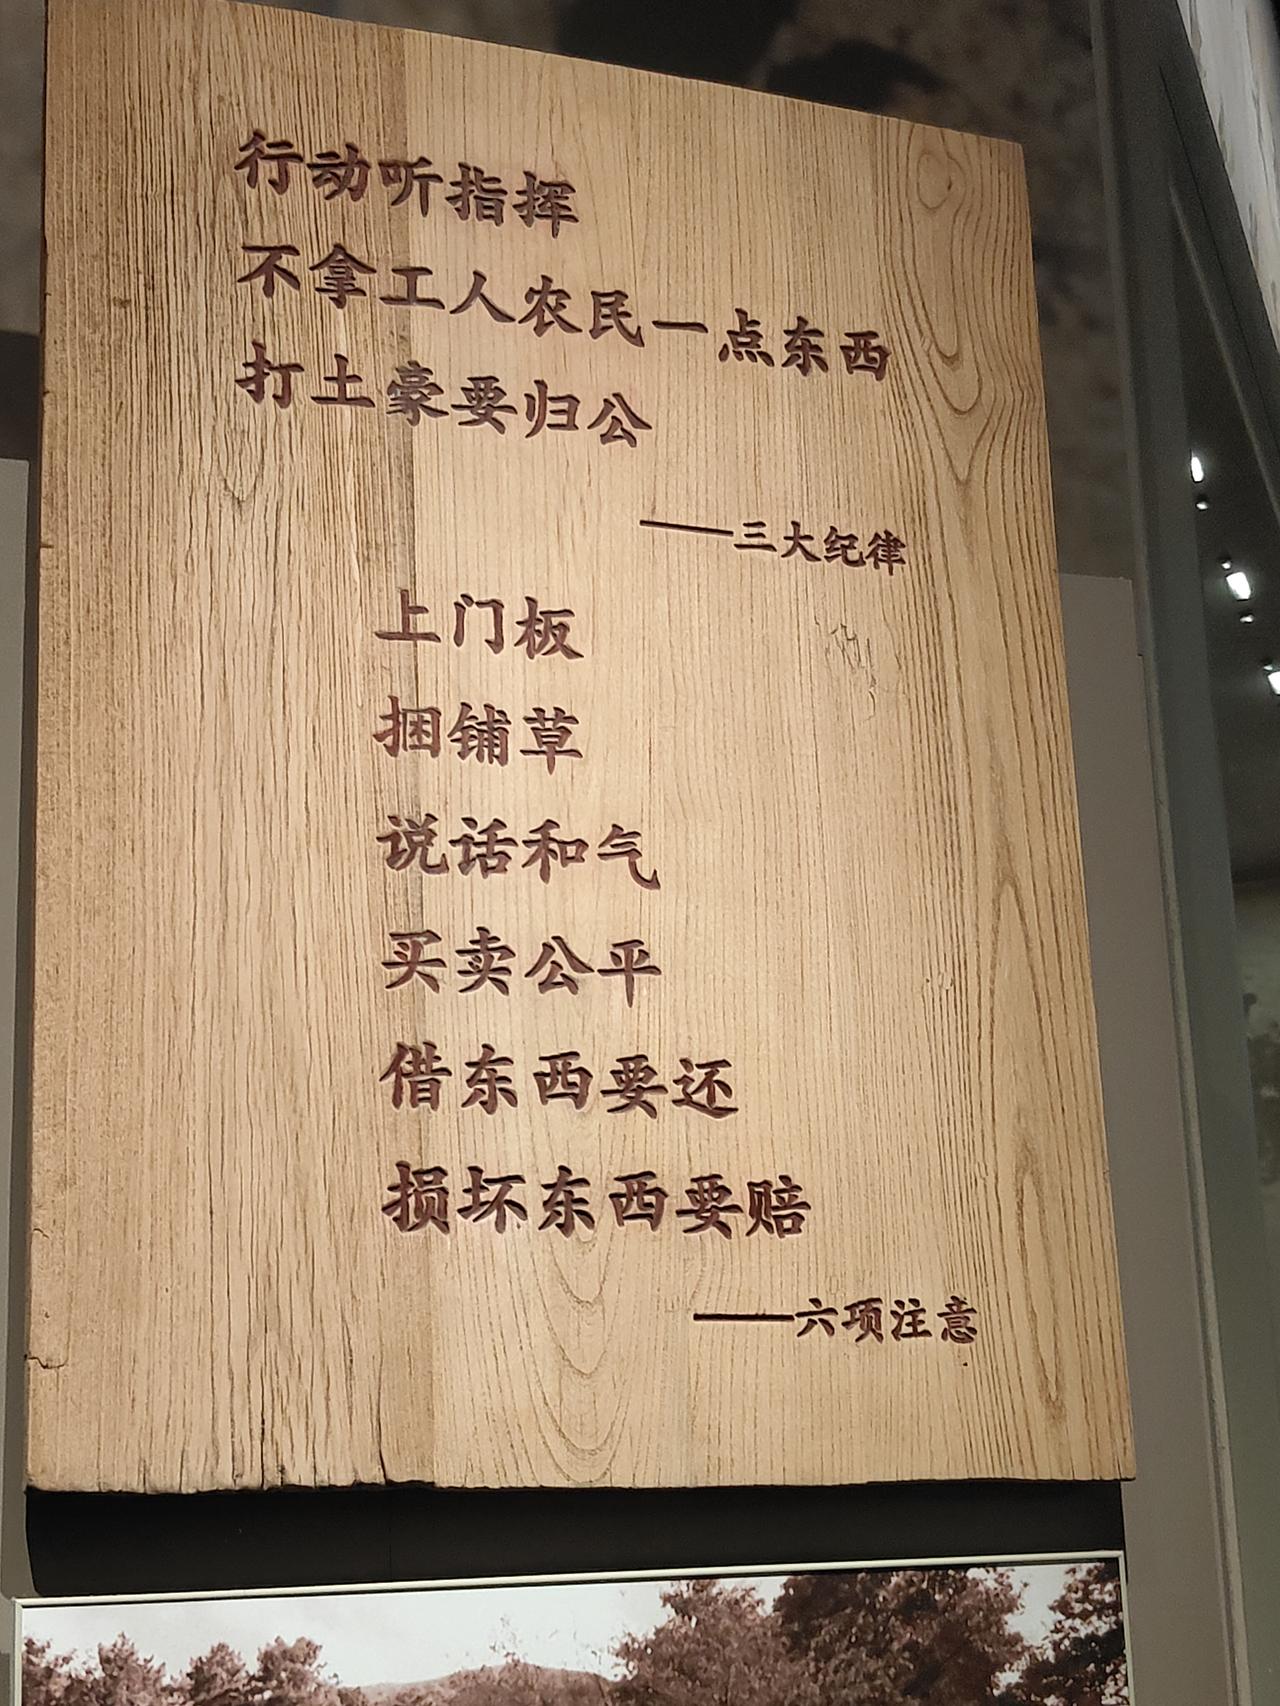 行动听指挥
不拿工人农民一点东西
打土豪要归公
——三大纪律
上门板
捆铺草
说话和气
买卖公平
借东西要还
损坏东西要赔
——六项注意